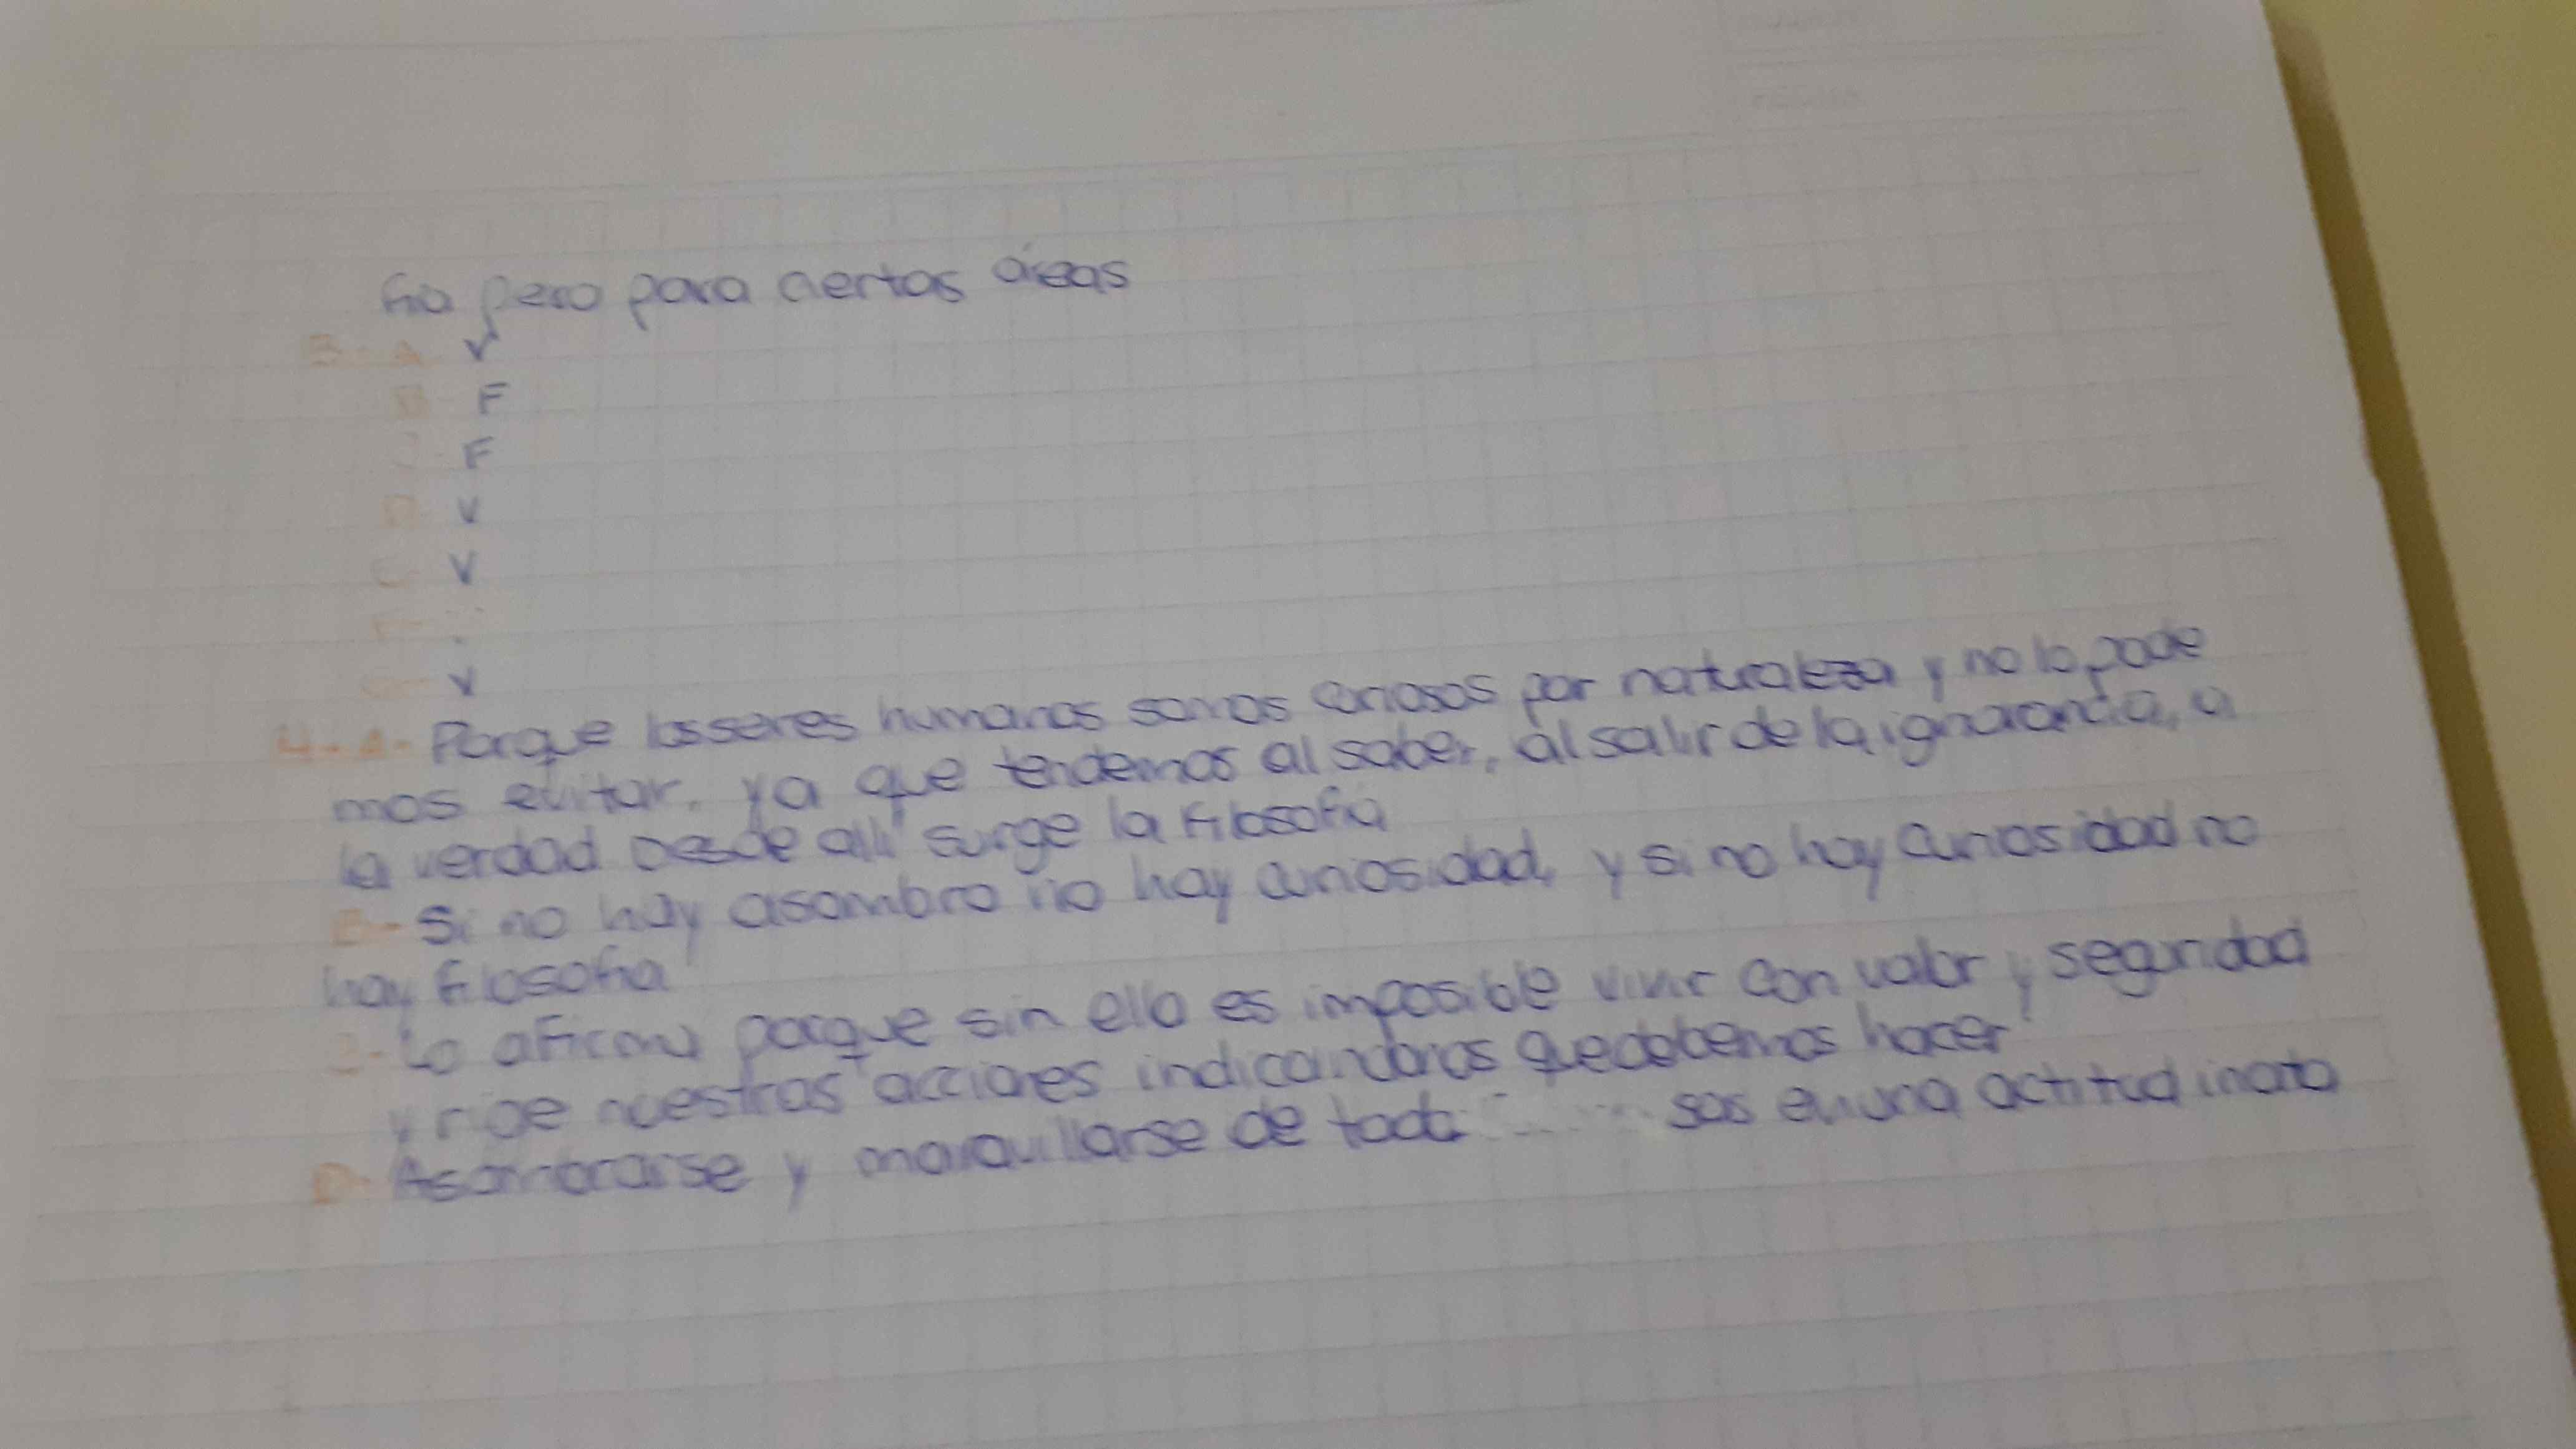 fia pero para ciertas áreas
3- A V
B F
C- F
D V
E V
F-
G- V
4- A- Porque los seres humanos somos curiosos por naturaleza y no lo pode
mos evitar. ya que tendemos al saber, al salir de la ignorancia, a
la verdad Desde alli surge la filosofia
B- Si no hay asombro no hay curiosidad, y si no hay curiosidad no
hay filosofia
C- Lo afirmo porque sin ella es imposible vivir con valor y seguridad
y rige nuestras acciones indicandonos que debemos hacer
D- Asombrarse y maravillarse de toda sas en una actitud inata